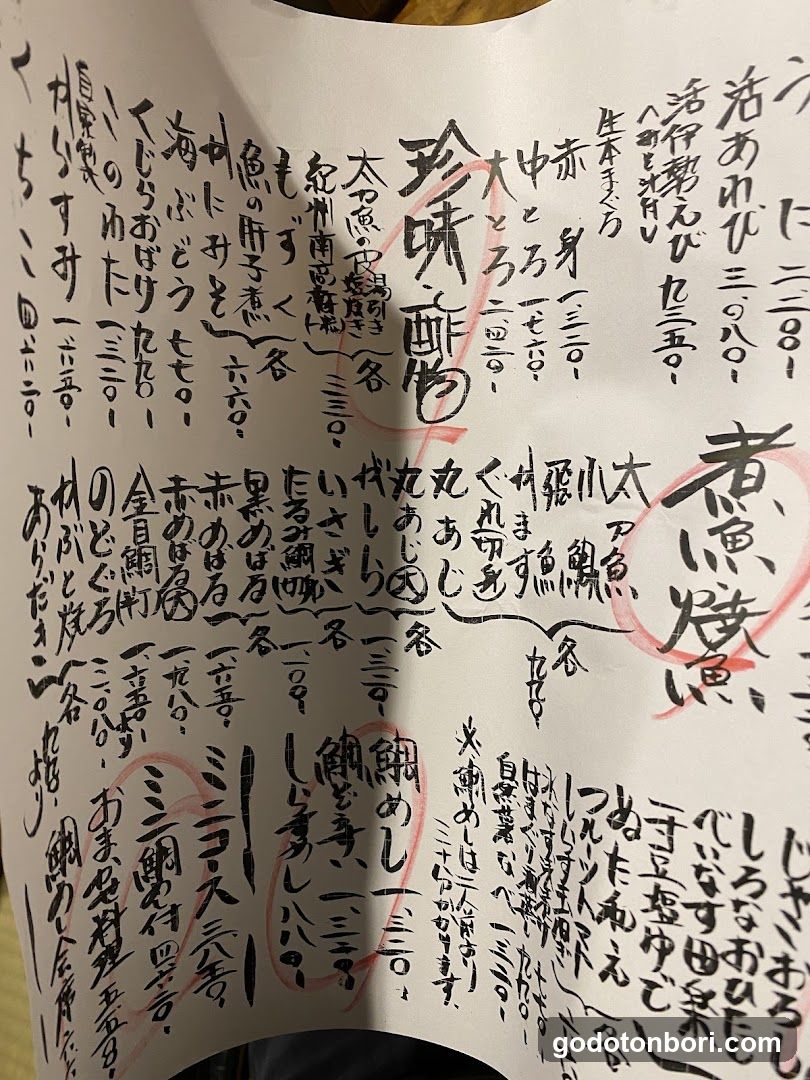 うに 二二〇〇-
活あわび 三、〇八〇-
活伊勢えび 九三五〇-
へみそ汁付し
生本まぐろ
赤身 一、三二〇-
中とろ 一、七六〇-
大とろ 二四二〇-
珍味・酢物
太刀魚の皮 湯引き 塩焼き
紀州南高梅
各 三三〇-
もずく
魚の肝子煮
かにみそ
各 六六〇-
海ぶどう 七七〇-
くじらおばけ 九九〇-
このわた 一、三二〇-
自家製
からすみ 一、六五〇-
くちこ 四、六二〇-
煮魚、焼魚
太刀魚
爪鯛
飛魚
かます
ぐれ切身
丸あじ
各 九九〇-
丸あじ大
がしら
各 一、三二〇-
いさぎ
たるみ鯛切身
各 一、一〇〇-
黒めばる
赤めばる
各 一、六五〇-
赤めばる大 一、九八〇-
金目鯛 一、六五〇より
のどぐろ 三、〇八〇-
かぶと焼
あらだき
各 より
じゃこおろし
しろなおひたし
べいなす田楽
一寸豆塩ゆで
ぬた和え
フルーツトマト
しらす玉
自然薯なべ 一、三二〇-
※鯛めしは二人前より
三十分かかります。
鯛めし 一、三二〇-
鯛ぞうすい 一、三二〇-
しらすめし 八八〇-
ミニコース 三八五〇-
ミニ鯛めし付 四六二〇-
おまかせ料理 五五〇〇-
鯛めし会席 六六
godotonbori.com